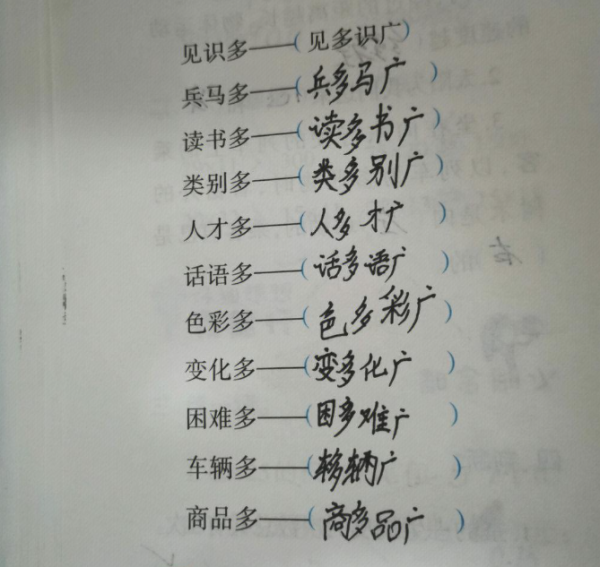 见识多——(见多识广)
兵马多——(兵多马广)
读书多——(读多书广)
类别多——(类多别广)
人才多——(人多才广)
话语多——(话多语广)
色彩多——(色多彩广)
变化多——(变多化广)
困难多——(困多难广)
车辆多——(车多辆广)
商品多——(商多品广)